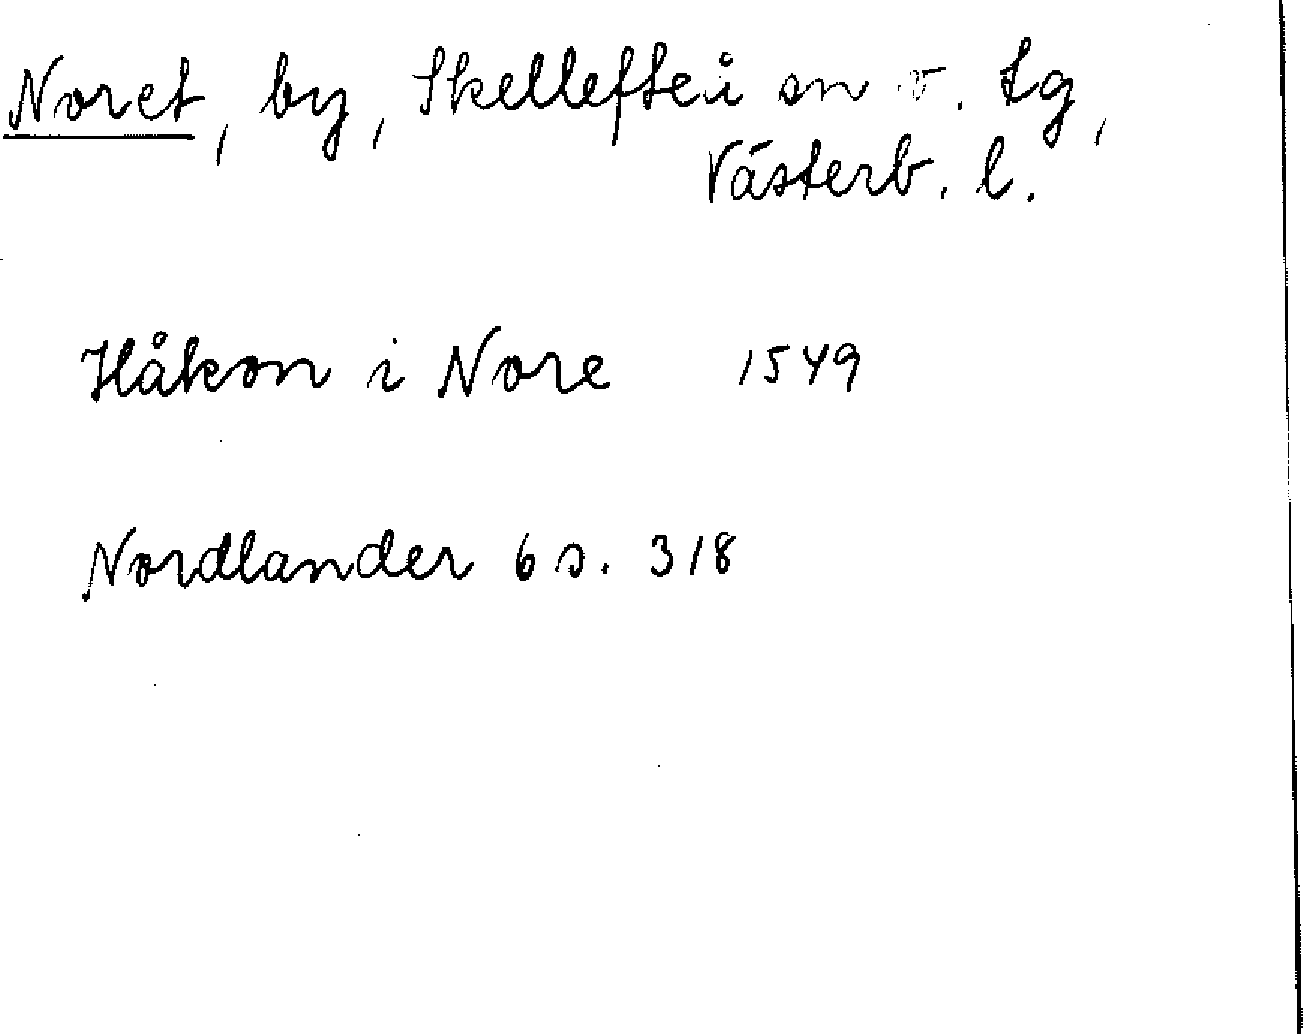 Noret, by, Skellefteå sn o. tg,
Västerb. l.
Håkon i Nore 1549
Nordlander 6 s. 318